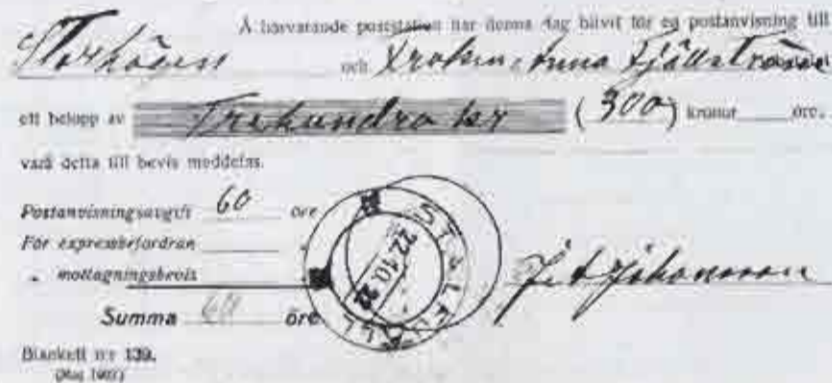 Å härvarande poststation har denna dag blivit för en postanvisning till
Storhögen och Fru Anna Fjällström
ett belopp av Trehundra kr (300) kronor öre,
varå detta till bevis meddelas.
Postanvisningsavgift 60 öre
För expressbefordran
„ mottagningsbevis
Summa 60 öre
22.10.22
Johansson
Blankett n:r 139.
(Maj 1907)